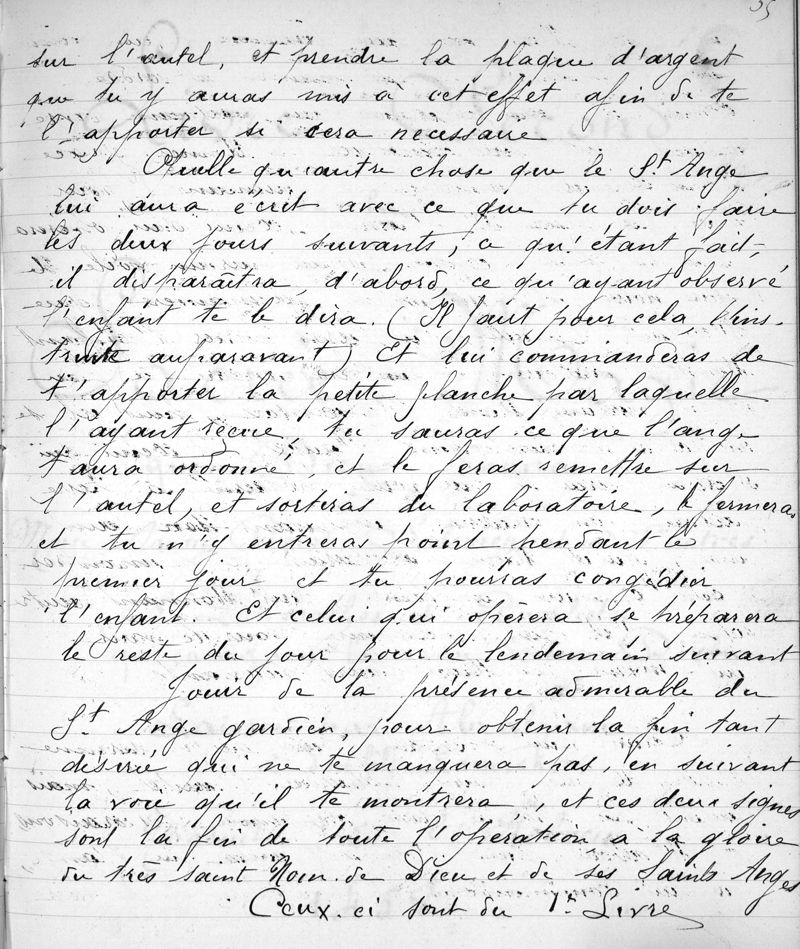 35
sur l'autel, et prendre la plaque d'argent
que tu y auras mis à cet effet afin de te
l'apporter si cera necessaire
Quelle qu'autre chose que le St. Ange
lui aura écrit avec ce que tu dois faire
les deux jours suivants, ce qu'étant fait,
il disparaîtra, d'abord, ce qu'ayant observé
l'enfant te le dira. (Il faut pour cela, l'ins-
truire auparavant) Et lui commanderas de
t'apporter la petite planche par laquelle
l'ayant reçue, tu sauras ce que l'ange
taura ordonné, et le feras remettre sur
l'autel, et sortiras du laboratoire, le fermeras
et tu n'y entreras point pendant le
premier jour et tu pourras congédier
l'enfant. Et celui qui opèrera se préparera
le reste du jour pour le lendemain suivant
Jouir de la présence admirable du
St. Ange gardien, pour obtenir la fin tant
désirée qui ne te manquera pas, en suivant
la voie qu'il te montrera, et ces deux signes
sont la fin de toute l'opération à la gloire
du très saint Nom de Dieu et de ses Saints Anges
Ceux-ci sont du 1er Livre